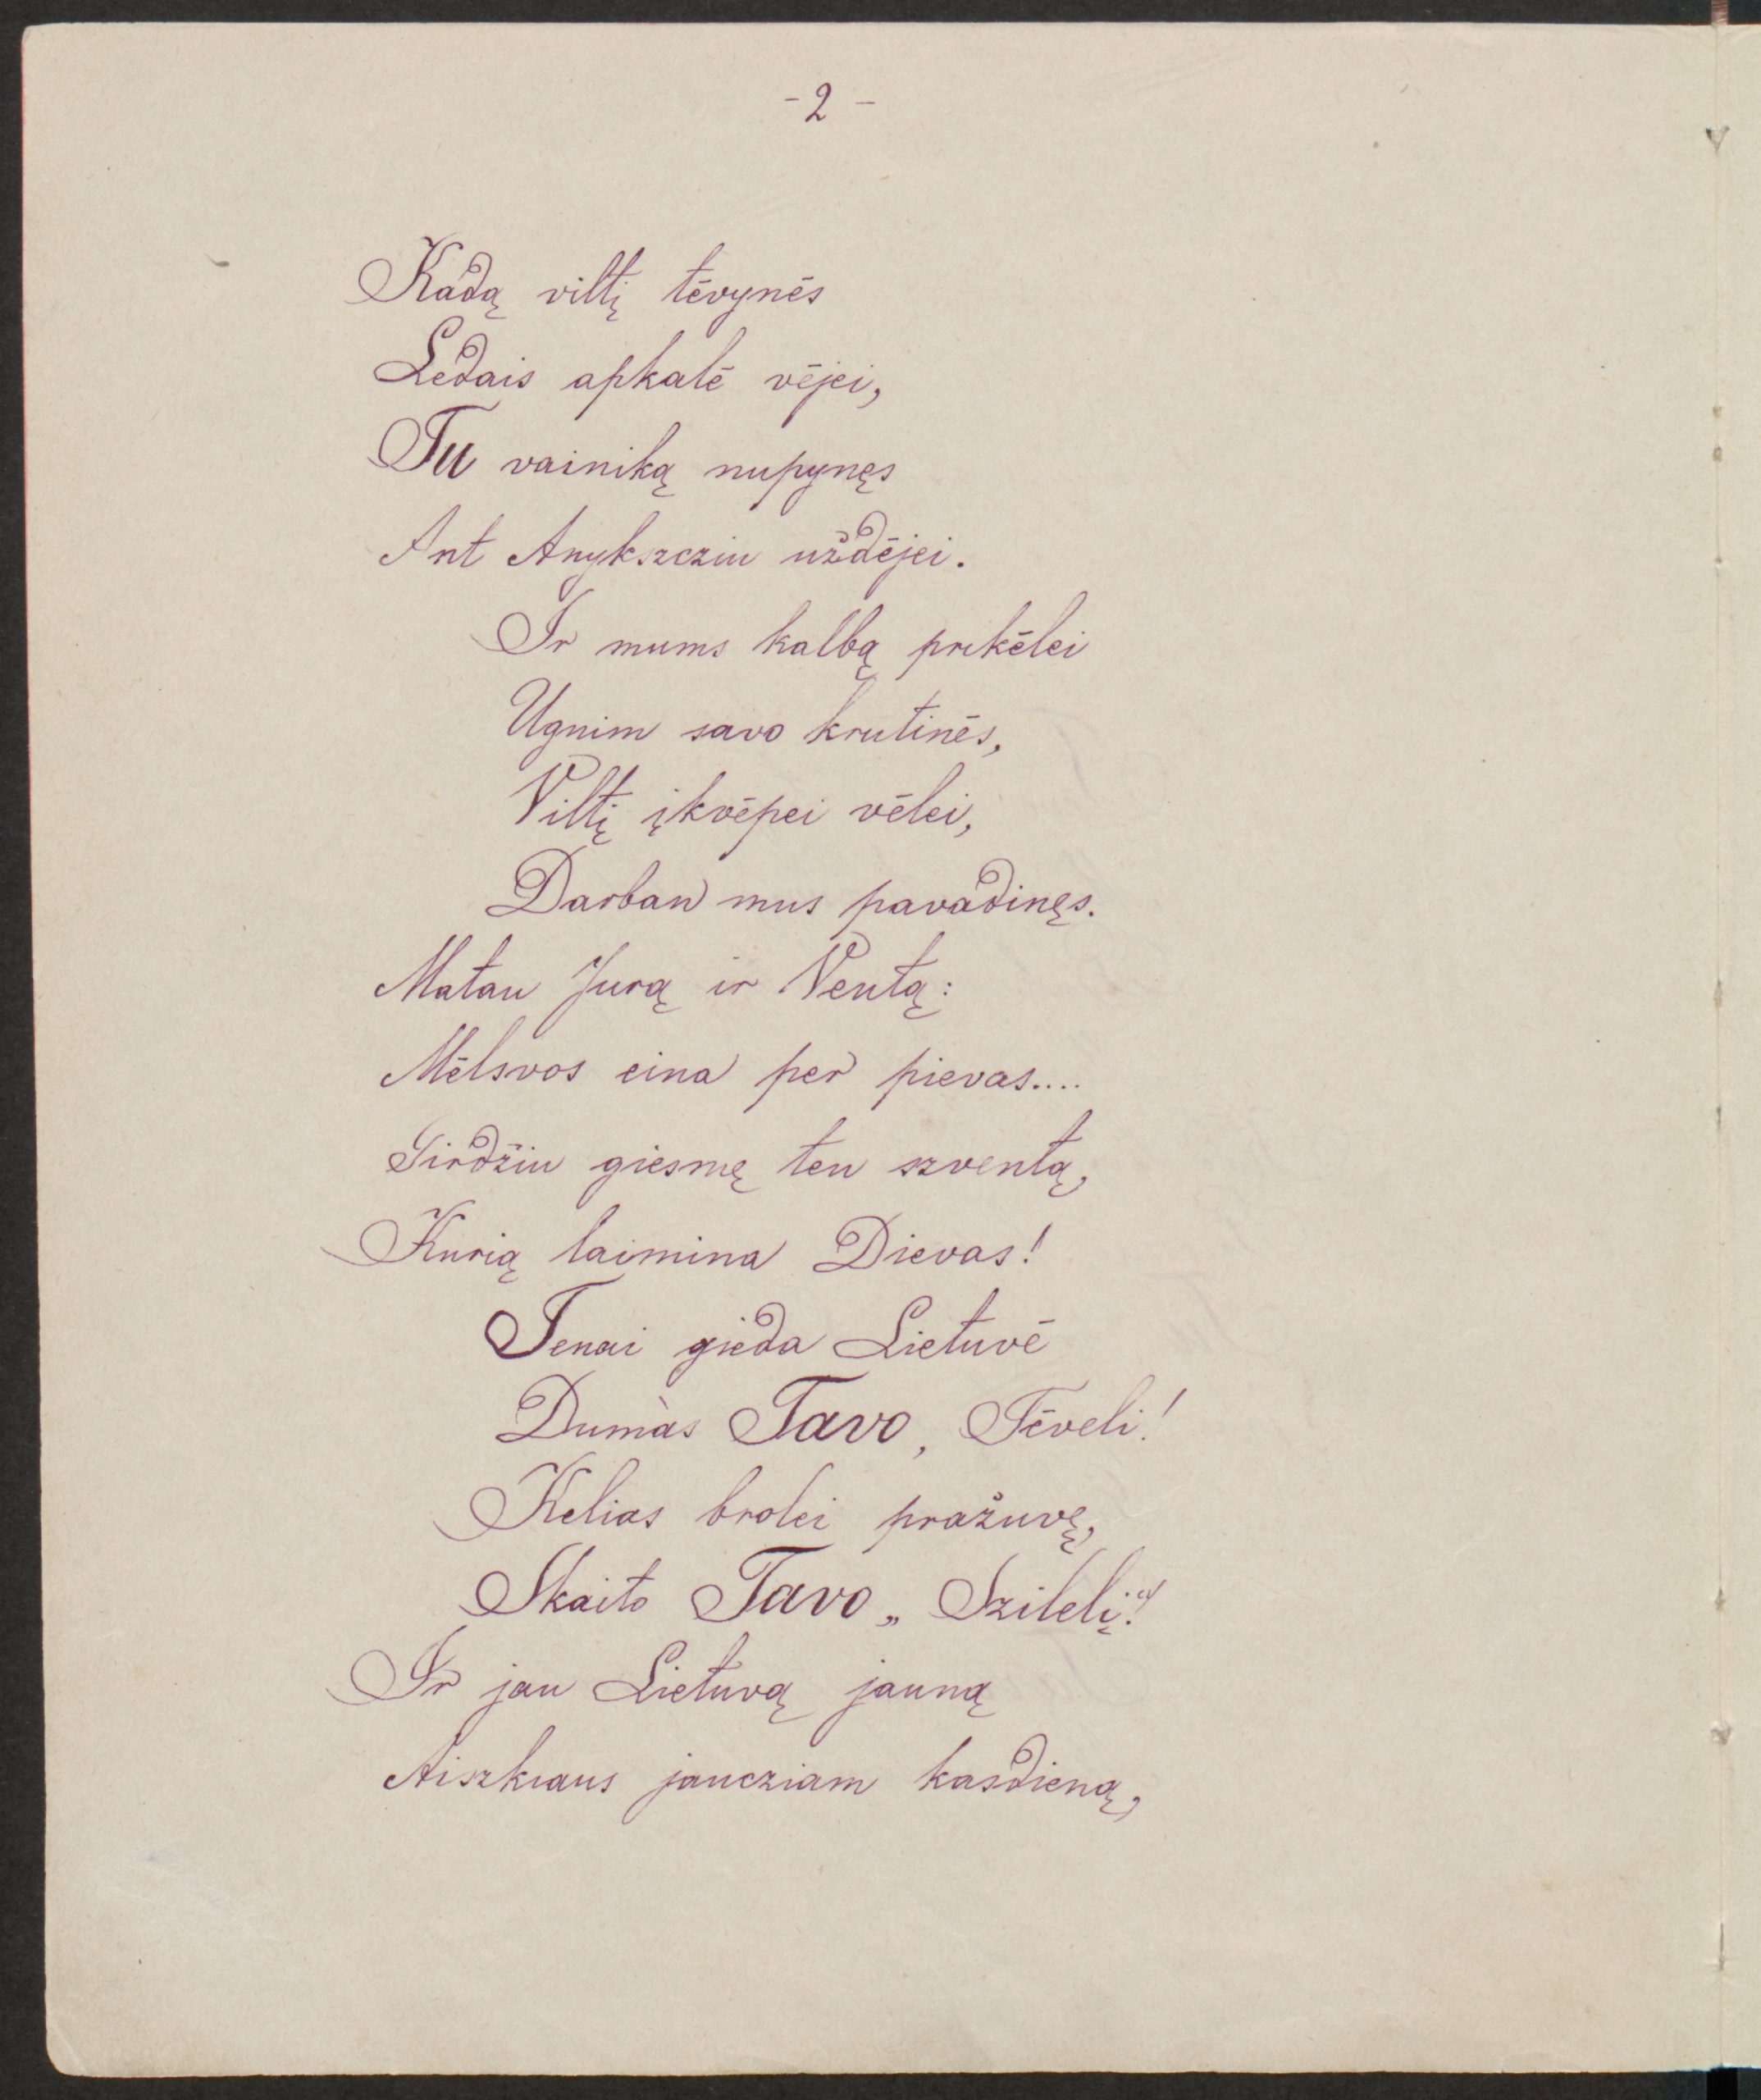 -2-
Kadą viltį tėvynės
Ledais apkalė vėjei,
Tu vainiką nupynęs
Ant Anykszcziu uždėjei.
Ir mums kalbą prikėlei
Ugnim savo krutinės,
Viltį įkvėpei vėlei,
Darban mus pavadinęs.
Matau Jurą ir Ventą:
Mėlsvos eina per pievas....
Girdžiu giesmę ten szventą,
Kurią laimina Dievas!
Tenai gieda Lietuvė
Dumàs Tavo, Tėveli!
Kelias brolei pražuvę,
Skaito Tavo „Szilelį!"
Ir jau Lietuvą jauną
Aiszkiaus jaucziam kasdieną,